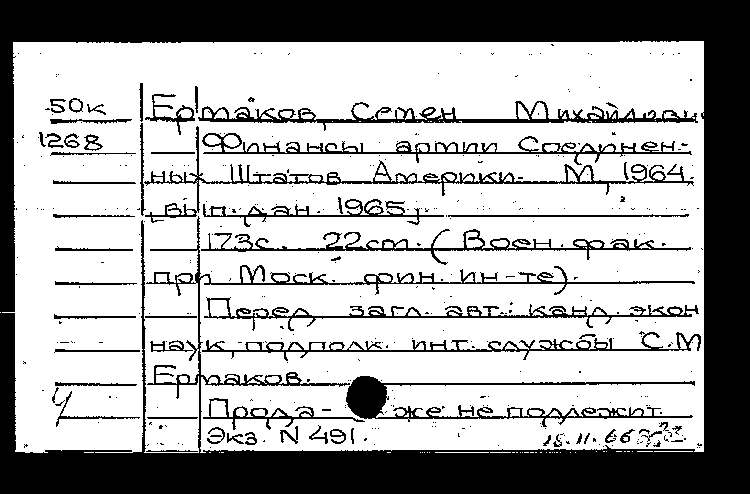 50к Ермаков, Семен Михайлович
1268 Финансы армии Соединен-
ных Штатов Америки. М., 1964.
[вып. дан. 1965].
173с. 22см. (Воен. фак.
при Моск. фин. ин-те).
Перед загл. авт.: канд. экон
наук, подполк. инт. службы С.М
Ермаков.
Прода- же не подлежит
Экз. N 491. 18.11.66